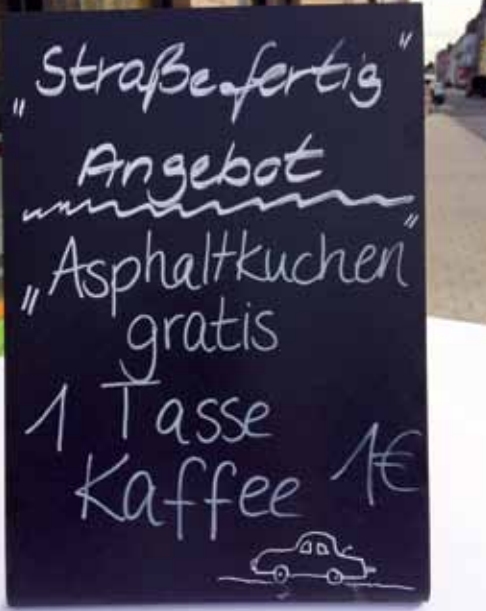 „Straße fertig"
Angebot
„Asphaltkuchen"
gratis
1 Tasse
Kaffee 1€